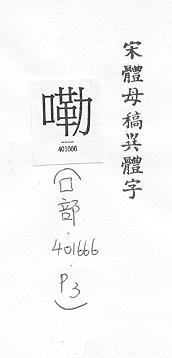 宋體母稿異體字
嘞
401666
(口部.401666.P3)